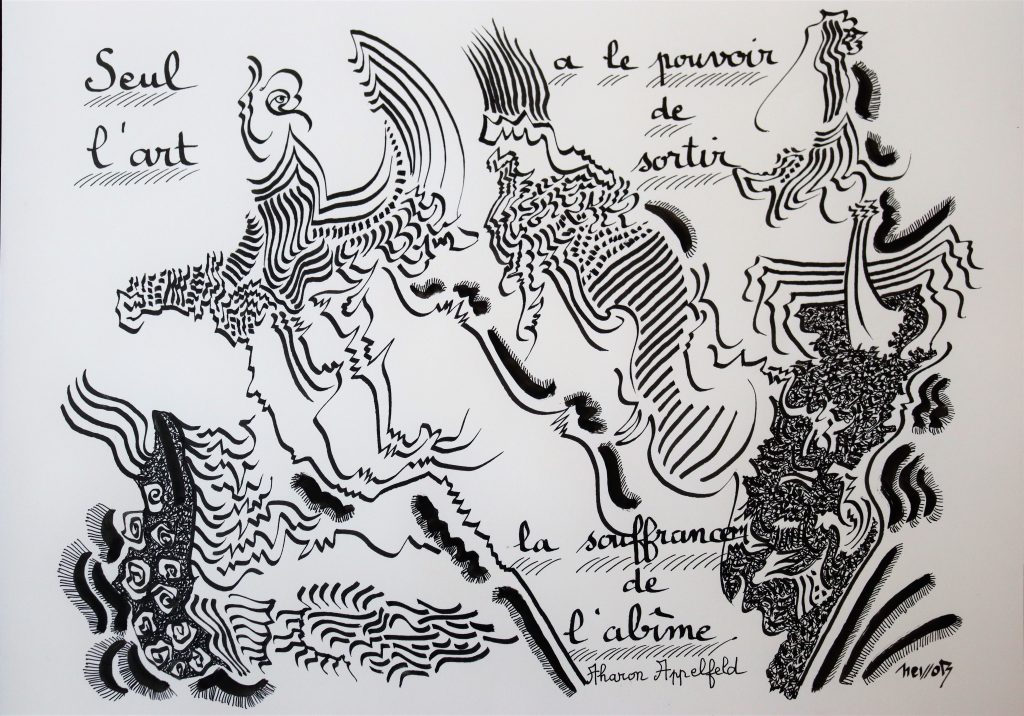 Seul
l'art
a le pouvoir
de
sortir
la souffrance
de
l'abîme
Aharon Appelfeld